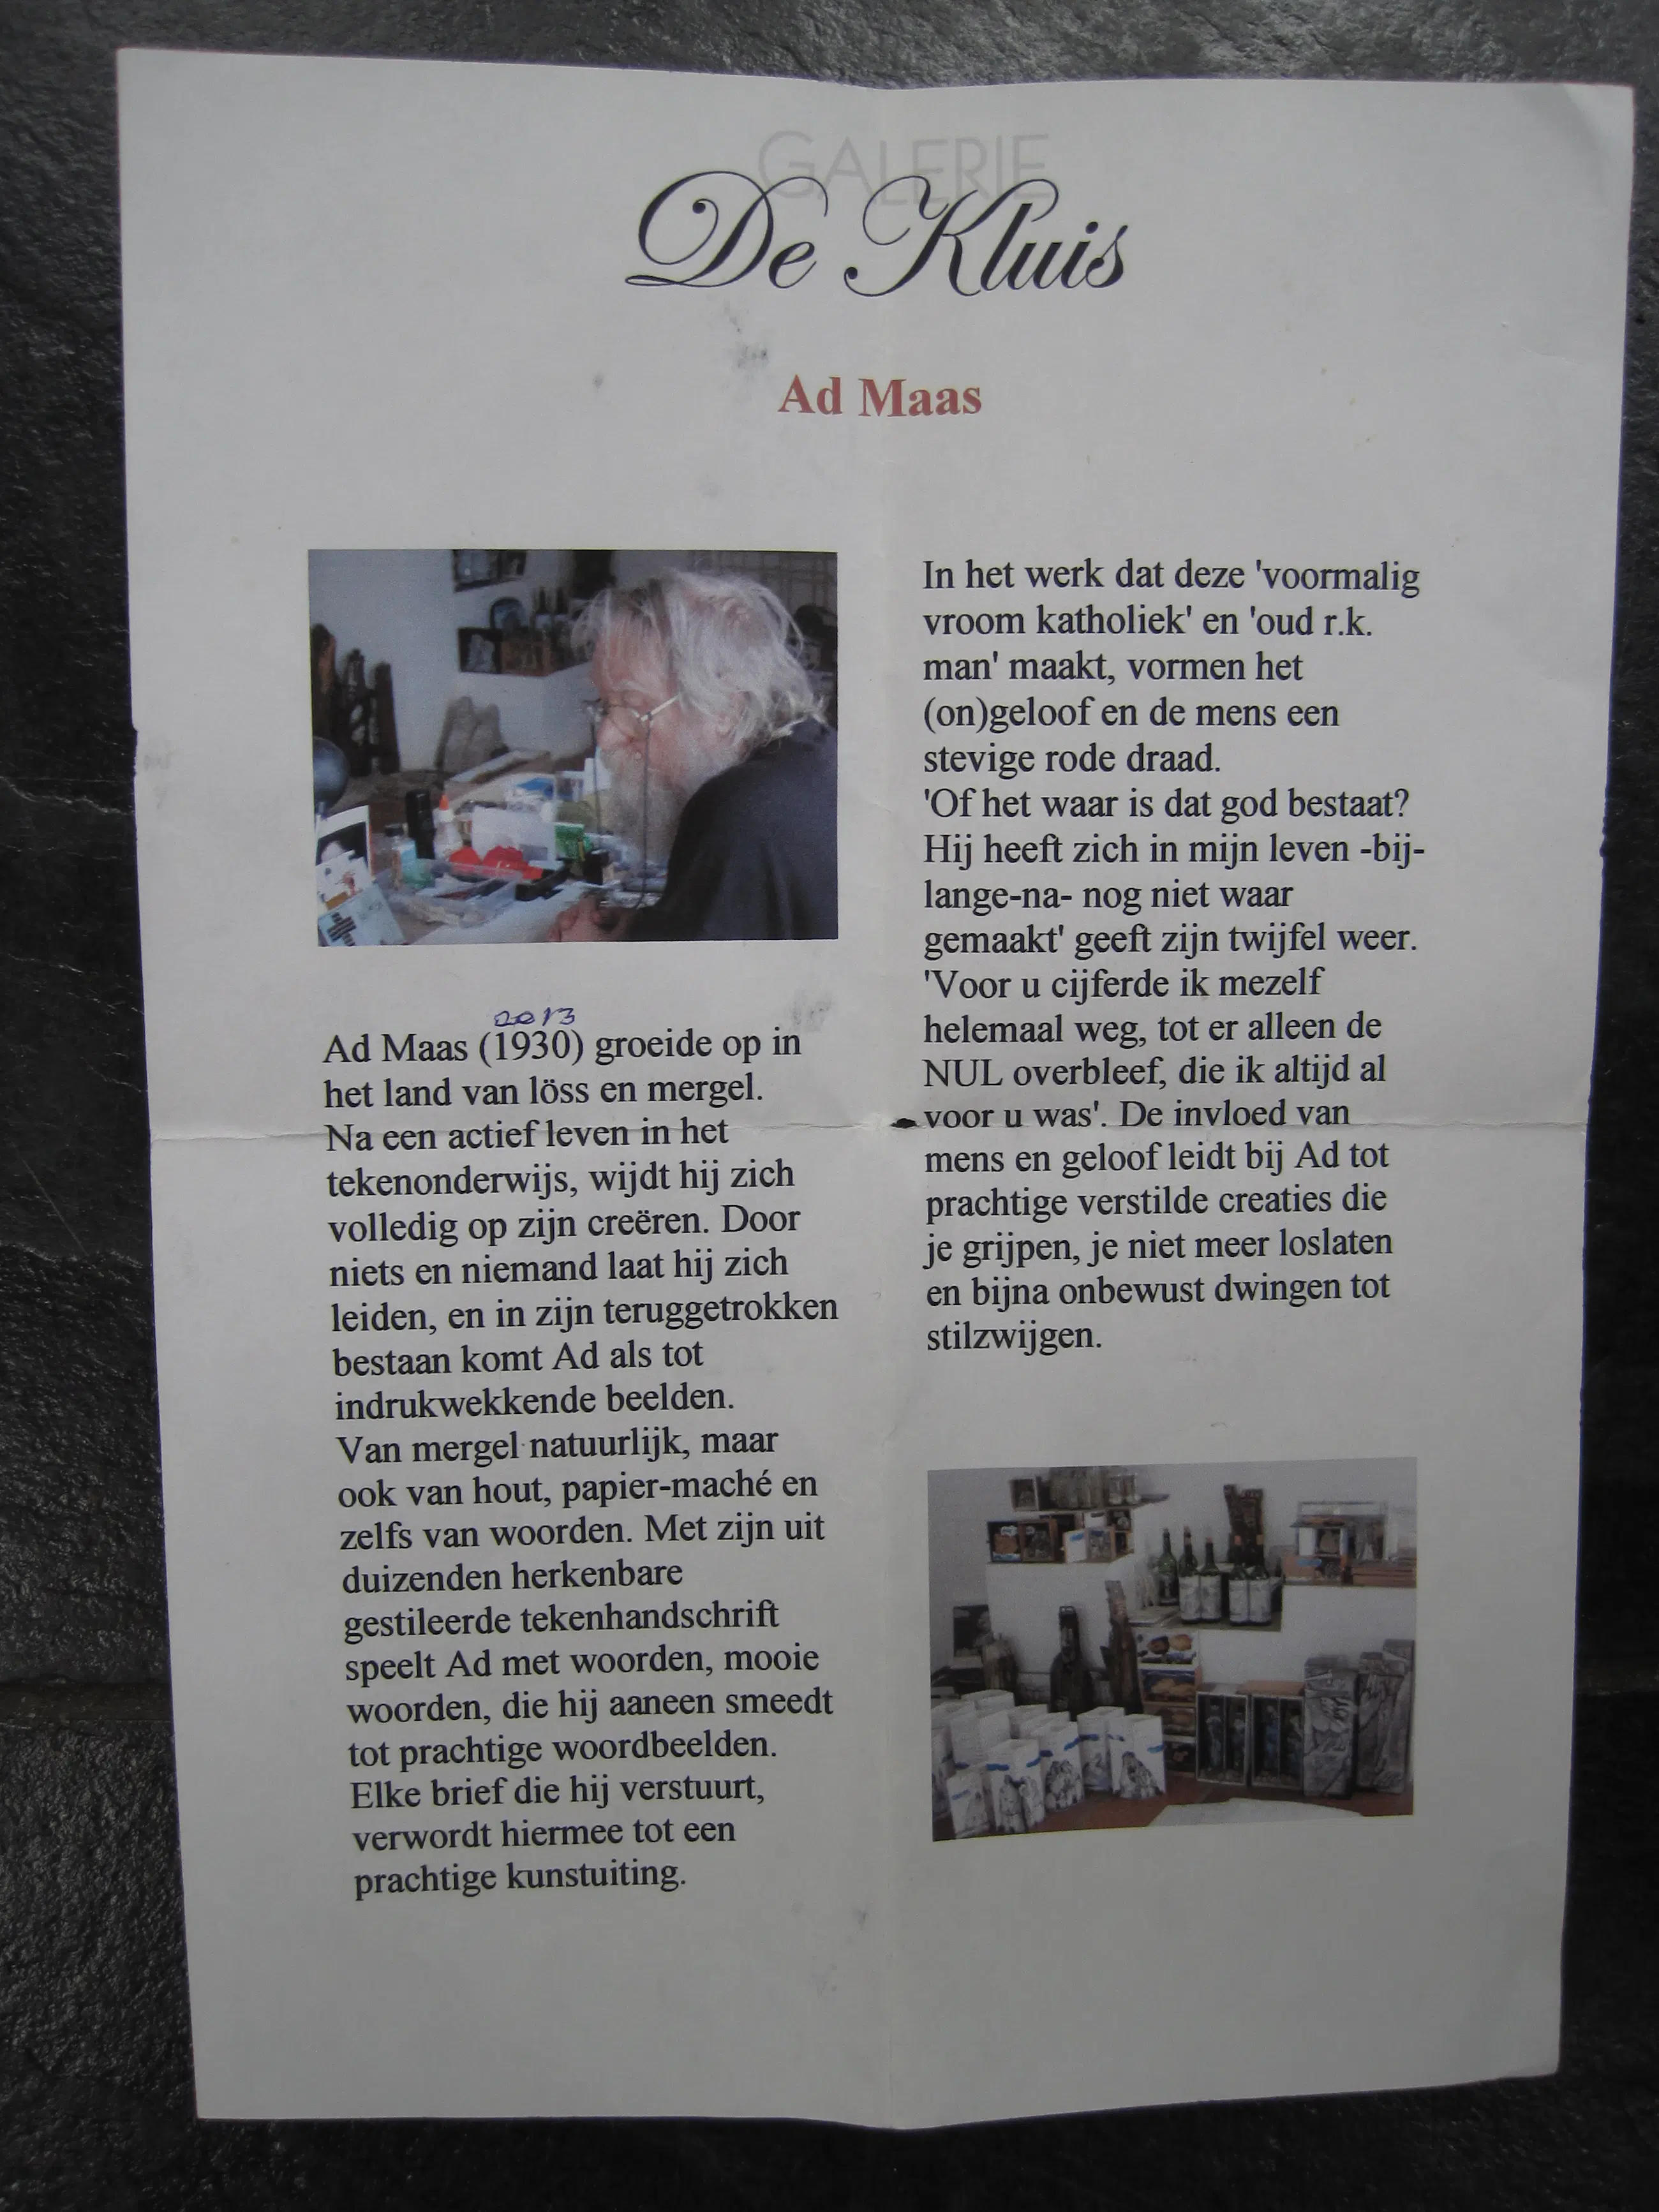 GALERIE
De Kluis
Ad Maas
2013
Ad Maas (1930) groeide op in
het land van löss en mergel.
Na een actief leven in het
tekenonderwijs, wijdt hij zich
volledig op zijn creëren. Door
niets en niemand laat hij zich
leiden, en in zijn teruggetrokken
bestaan komt Ad als tot
indrukwekkende beelden.
Van mergel natuurlijk, maar
ook van hout, papier-maché en
zelfs van woorden. Met zijn uit
duizenden herkenbare
gestileerde tekenhandschrift
speelt Ad met woorden, mooie
woorden, die hij aaneen smeedt
tot prachtige woordbeelden.
Elke brief die hij verstuurt,
verwordt hiermee tot een
prachtige kunstuiting.
In het werk dat deze 'voormalig
vroom katholiek' en 'oud r.k.
man' maakt, vormen het
(on)geloof en de mens een
stevige rode draad.
'Of het waar is dat god bestaat?
Hij heeft zich in mijn leven -bij-
lange-na- nog niet waar
gemaakt' geeft zijn twijfel weer.
'Voor u cijferde ik mezelf
helemaal weg, tot er alleen de
NUL overbleef, die ik altijd al
voor u was'. De invloed van
mens en geloof leidt bij Ad tot
prachtige verstilde creaties die
je grijpen, je niet meer loslaten
en bijna onbewust dwingen tot
stilzwijgen.